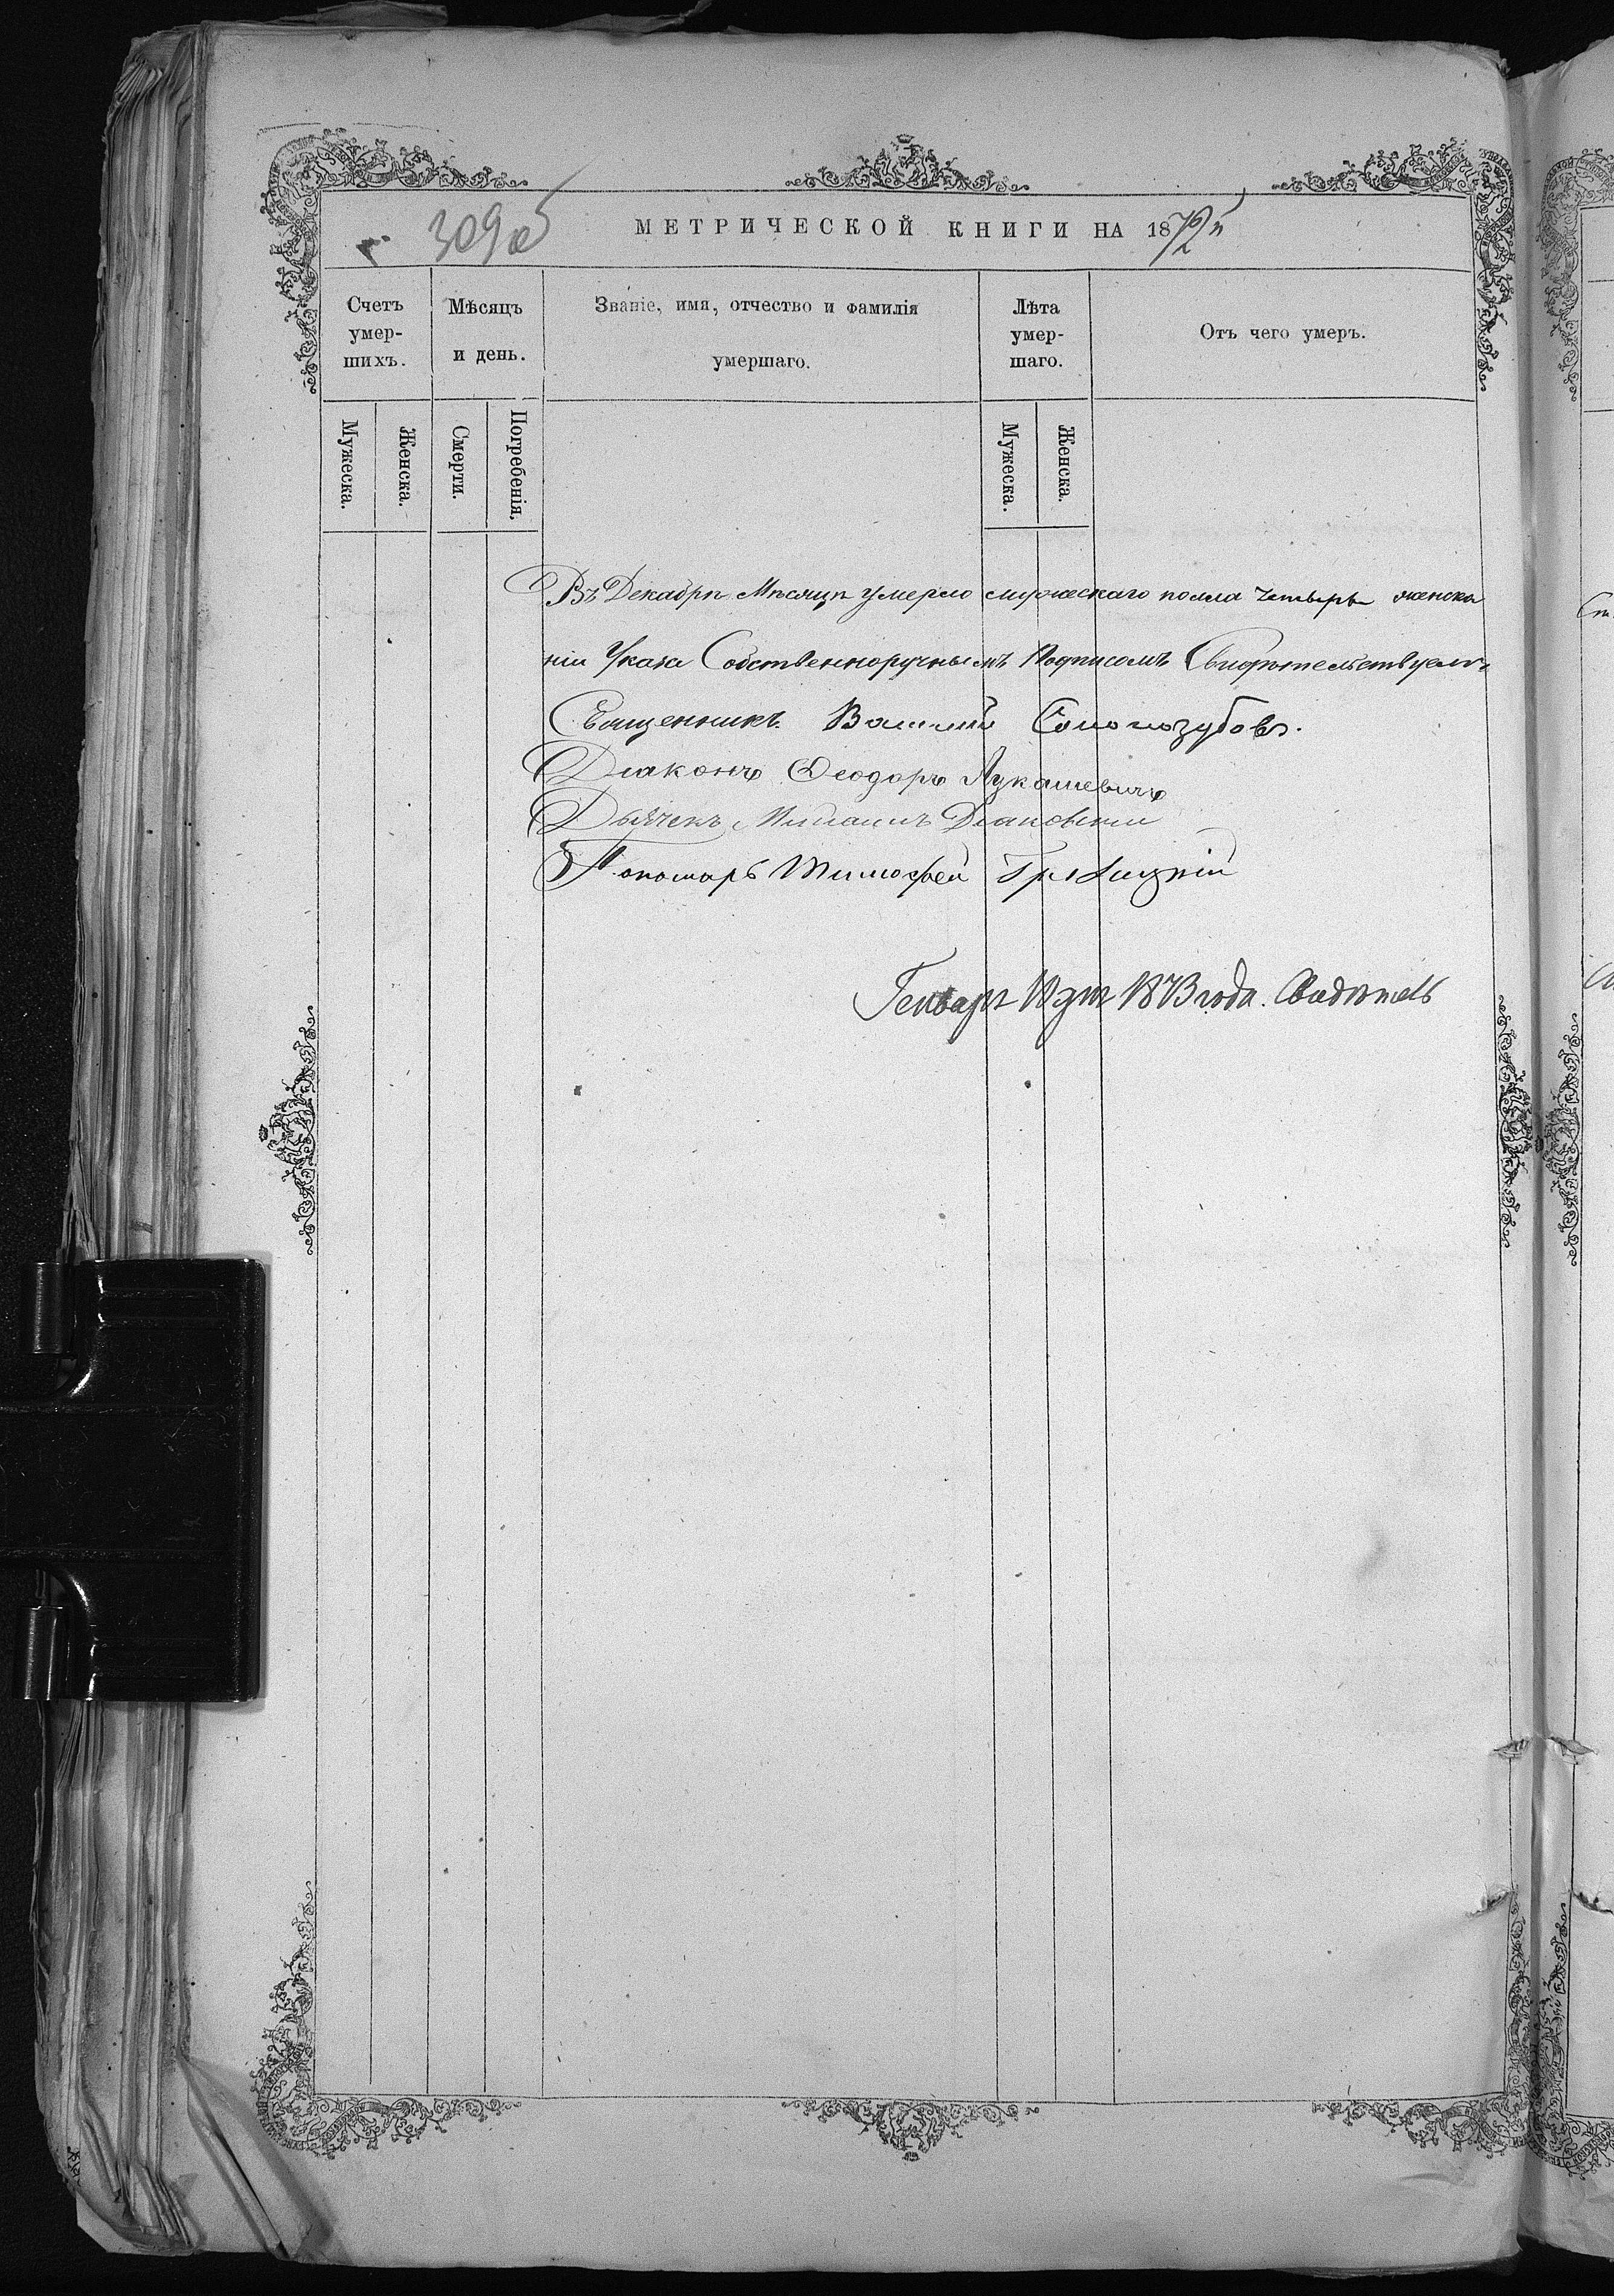 309об
МЕТРИЧЕСКОЙ КНИГИ НА 1872й
Счетъ умер- шихъ.
Мѣсяцъ и день.
Званіе, имя, отчество и фамилія умершаго.
Лѣта умер- шаго.
Отъ чего умеръ.
Мужеска.
Женска.
Смерти.
Погребенія,
Мужеска.
Женска.
Въ Декабрѣ Мѣсяцѣ умерло мужескаго полла четыре женска
ніи Указа Собственноручнымъ Подписомъ Свидѣтельствуемъ
Священникъ Василій
Діаконъ Ѳеодоръ Лукашевичъ
Дьячекъ Михаилъ
Пономарь Тимофей
Генваря 1873 года. Свидѣтель